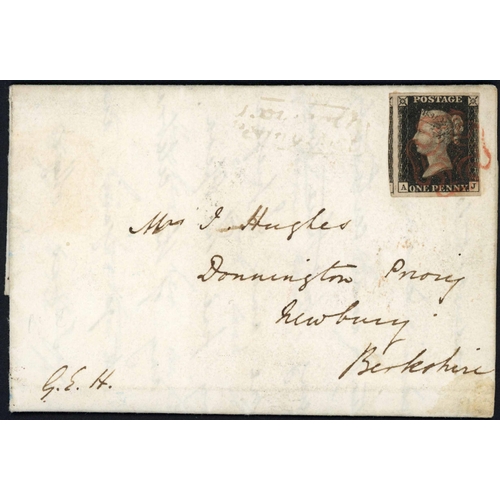 POSTAGE
A ONE PENNY. J
Mrs J. Hughes
Donnington Priory
Newbury
Berkshire
G. E. H.